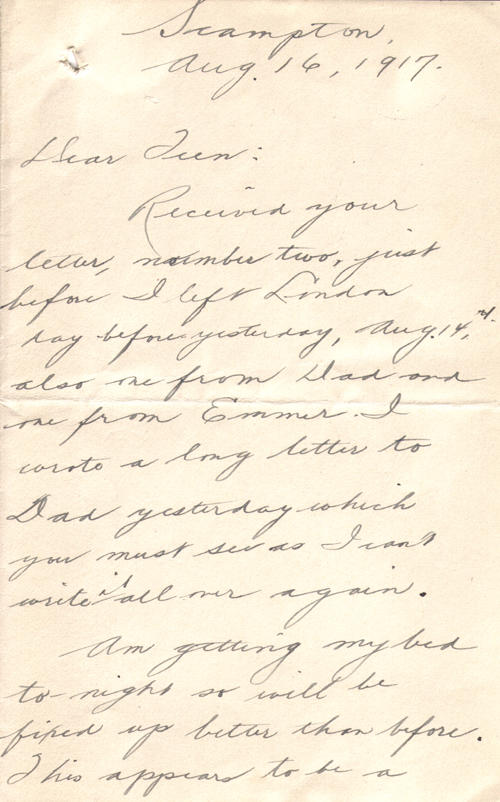 Scampton,
Aug. 16, 1917.
Dear Teen:
Received your
letter, number two, just
before I left London
day before yesterday, Aug. 14,
also one from Dad and
one from Emmer. I
wrote a long letter to
Dad yesterday which
you must see as I cant
write it all over again.
Am getting my bed
to-night so will be
fixed up better than before.
This appears to be a